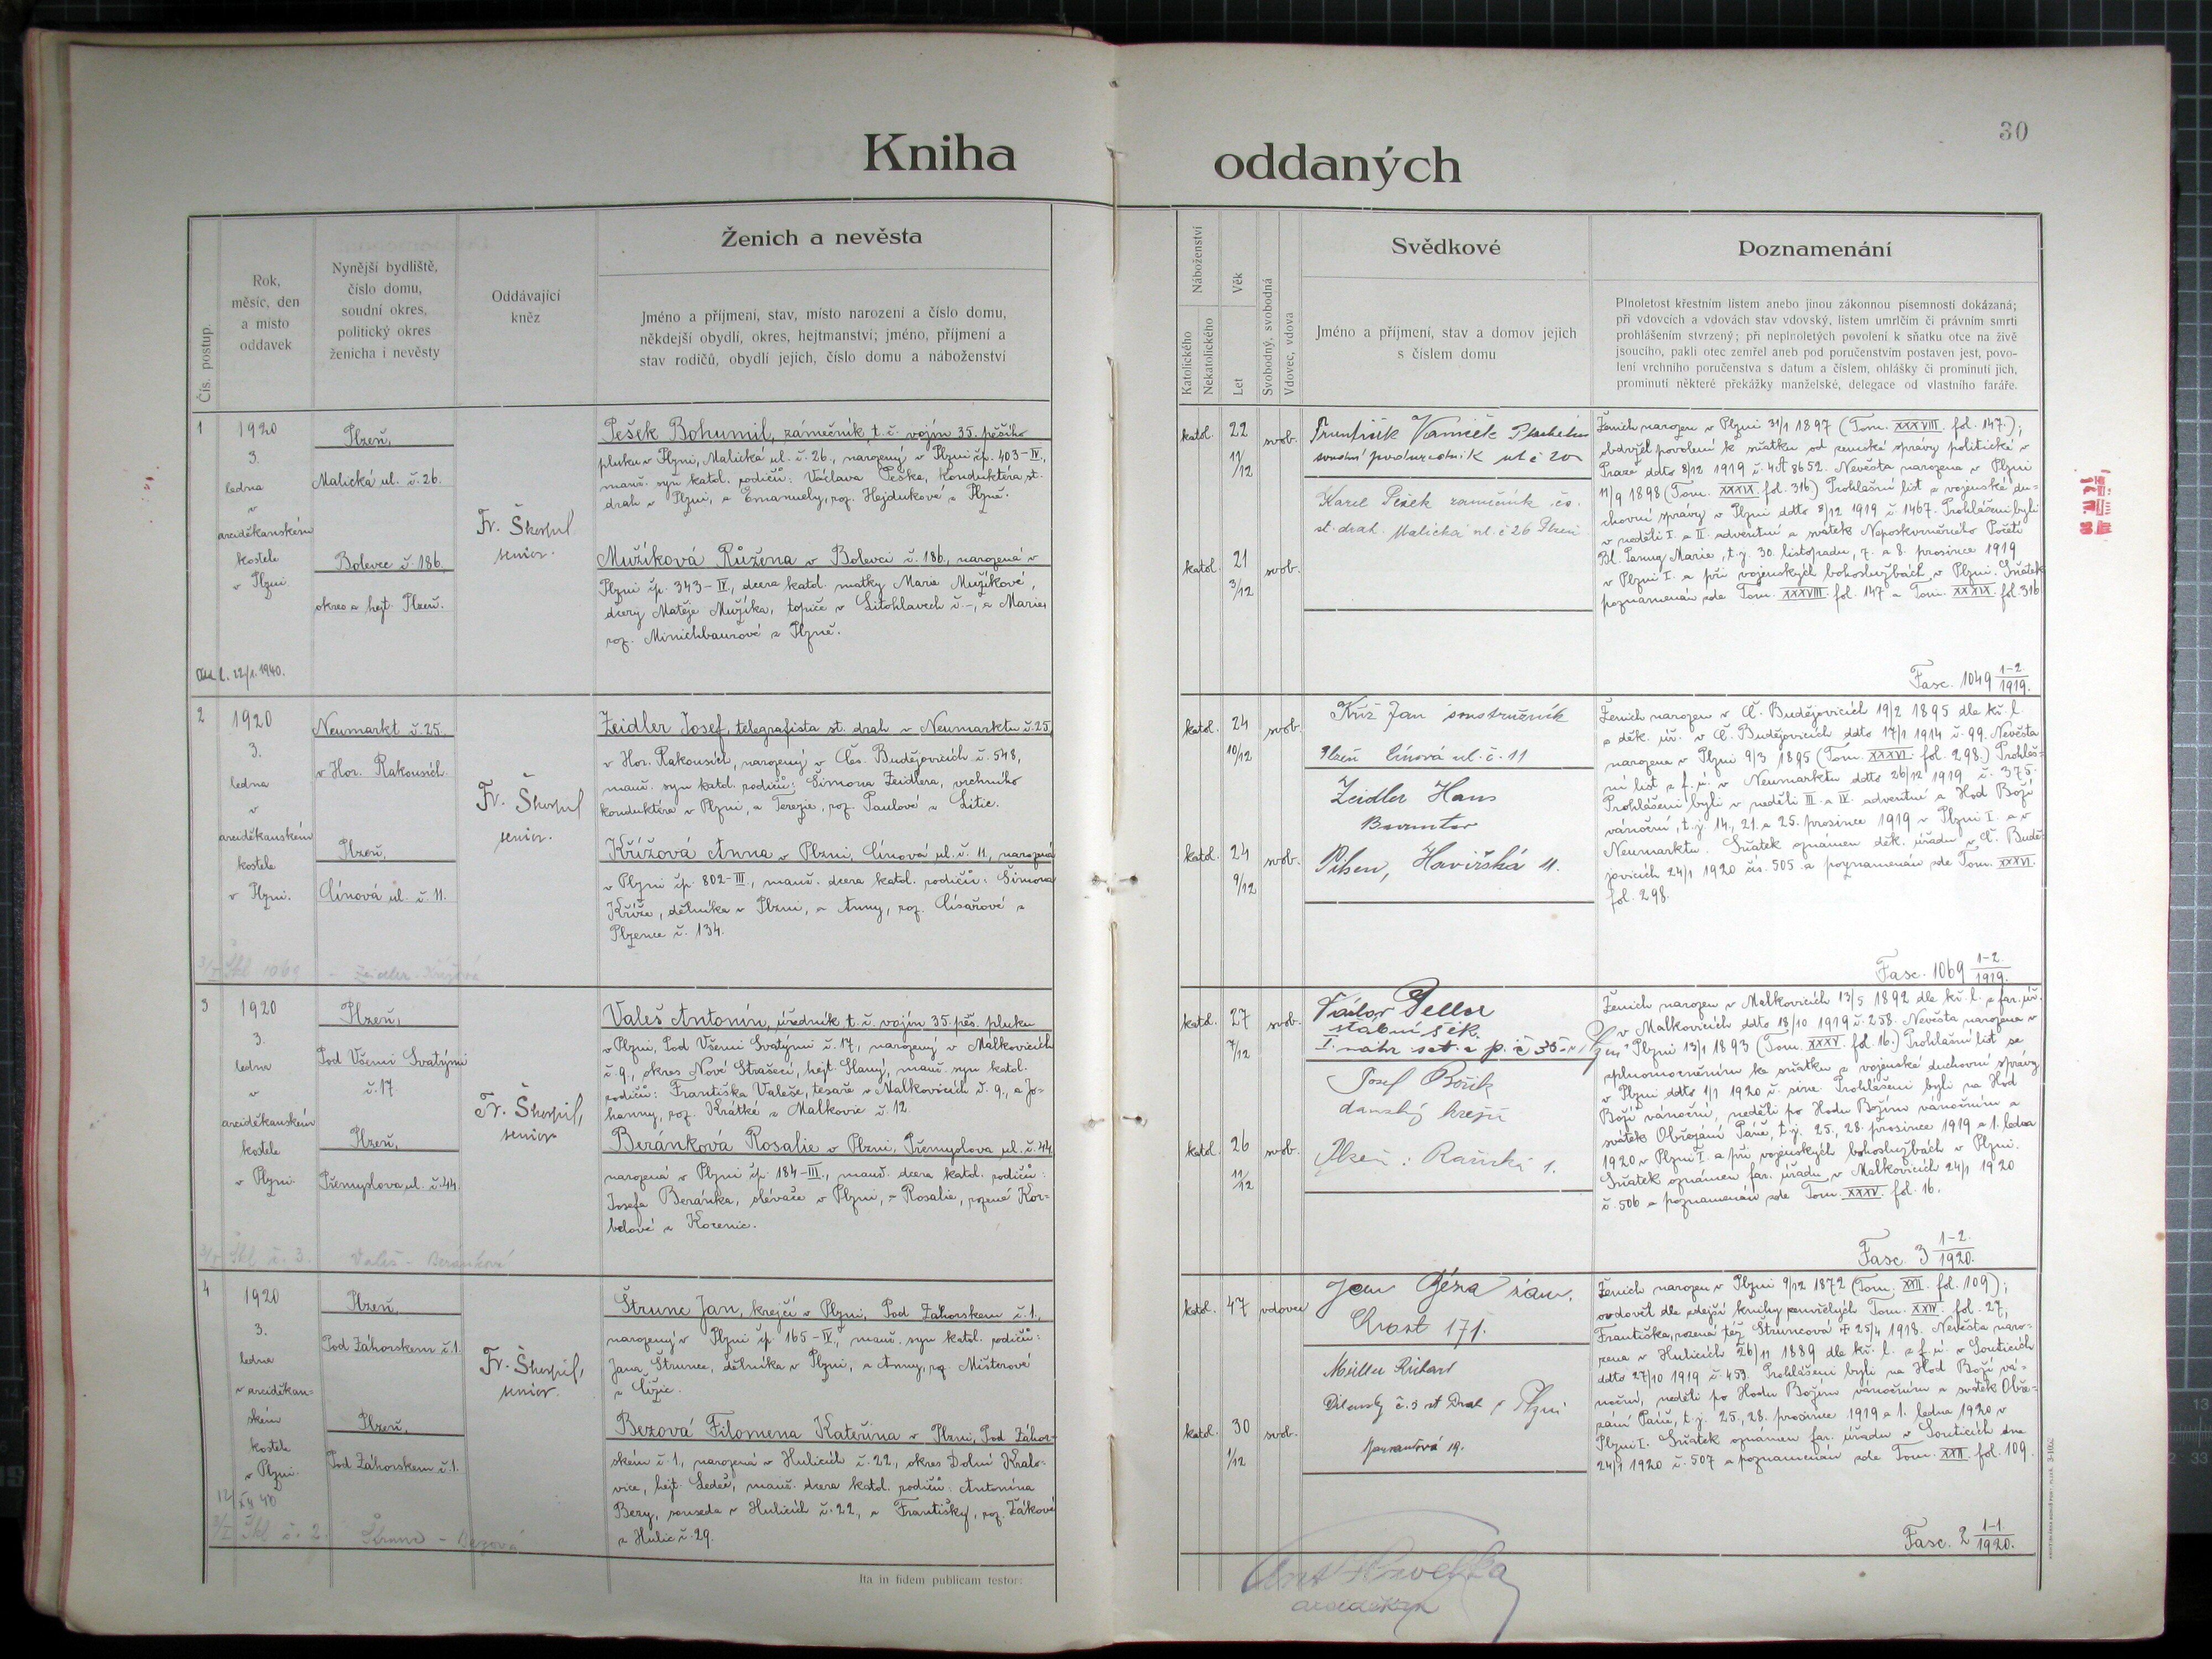 30
Kniha oddaných
Čís. postup.
Rok,
měsíc, den
a místo
oddavek
Nynější bydliště,
číslo domu,
soudní okres,
politický okres
ženicha i nevěsty
Oddávající
kněz
Ženich a nevěsta
Jméno a příjmení, stav, místo narození a číslo domu,
někdejší obydlí, okres, hejtmanství; jméno, příjmení a
stav rodičů, obydlí jejich, číslo domu a náboženství
Náboženství
Katolického
Nekatolického
Věk
Let
Svobodný, svobodná
Vdovec, vdova
Svědkové
Jméno a příjmení, stav a domov jejich
s číslem domu
Poznamenání
Plnoletost křestním listem anebo jinou zákonnou písemností dokázaná;
při vdovcích a vdovách stav vdovský, listem umrtlčím či právním smrti
prohlášením stvrzený; při neplnoletých povolení k sňatku otce na živě
jsoucího, pakli otec zemřel aneb pod poručenstvím postaven jest, povo-
lení vrchního poručenstva s datum a číslem, ohlášky či prominutí jich,
prominutí některé překážky manželské, delegace od vlastního faráře.
1
1920
3.
ledna
v
arciděkanském
kostele
v Plzni.
22/1. 1940.
Plzeň,
Malická ul. č. 26.
Bolevec č. 186.
okres a hejt. Plzeň.
Fr. Škorpil
senior.
Pešek Bohumil, zámečník, t. č. vojín 35. pěšího
pluku v Plzni, Malická ul. č. 26., narozený v Plzni čp. 403-IV.,
manž. syn katol. rodičů: Václava Peška, konduktéra st.
drah v Plzni, a Emanuely, roz. Hejdukové z Plzně.
Mužíková Růžena v Bolevci č. 186., narozená v
Plzni čp. 343-II., dcera katol. matky Marie Mužíkové,
dcery Matěje Mužíka, topiče v Litohlavech č. -, a Marie,
roz. Minichbaurové z Plzně.
katol. 22 11/12 svob.
katol. 21 3/12 svob.
František
ul č 20
Karel Pešek zámečník čs.
st. drah. Malická ul. č 26 Plzeň
Ženich narozen v Plzni 31/1 1897 (Tom. XXXVIII. fol. 147.);
obdržel povolení k sňatku od zemské správy politické v
Praze ddto 8/12 1919 č. 4A 8652. Nevěsta narozena v Plzni
11/9 1898 (Tom. XXXIX. fol. 316) Prohlašní list z vojenské du-
chovní správy v Plzni ddto 8/12 1919 č. 1467. Prohlášeni byli
v neděli I. a II. adventní a svátek Neposkvrněného Početí
Bl. Panny Marie, t. j. 30. listopadu, 7. a 8. prosince 1919
v Plzni I. a při vojenských bohoslužbách v Plzni. Sňatek
poznamenán zde Tom. XXXVIII. fol. 147 a Tom. XXXIX. fol. 316
Fasc. 1049 1-2/1919.
2
1920
3.
ledna
v
arciděkanském
kostele
v Plzni.
Neumarkt č. 25.
v Hor. Rakousích.
Plzeň,
Cínová ul. č. 11.
Fr. Škorpil
senior.
Zeidler Josef, telegrafista st. drah v Neumarktu č. 25.
v Hor. Rakousích, narozený v Čes. Budějovicích č. 548,
manž. syn katol. rodičů: Šimona Zeidlera, vrchního
konduktéra v Plzni, a Terezie, roz. Paulové z Litic.
Křížová Anna v Plzni, Cínová ul. č. 11., narozená
v Plzni čp. 802-III., manž. dcera katol. rodičů: Šimona
Kříže, dělníka v Plzni, a Anny, roz. Císařové z
Plzence č. 134.
Škl 1069 - Zeidler-Křížová
katol. 24 10/12 svob.
katol. 24 9/12 svob.
Kříž Jan soustružník
Plzeň Cínová ul. č. 11
Zeidler Hans
Beamter
Pilsen, Havířská 11.
Ženich narozen v Č. Budějovicích 19/2 1895 dle kř. l.
z děk. úř. v Č. Budějovicích ddto 17/1 1914 č. 99. Nevěsta
narozena v Plzni 9/3 1895 (Tom. XXXVI. fol. 298.) Prohláš-
ní list z f. ú. v Neumarktu ddto 26/12 1919 č. 375.
Prohlášeni byli v neděli III. a IV. adventní a Hod Boží
vánoční, t. j. 14., 21. a 25. prosince 1919 v Plzni I. a v
Neumarktu. Sňatek oznámen děk. úřadu v Č. Budě-
jovicích 24/1 1920 čís. 505 a poznamenán zde Tom. XXXVI.
fol. 298.
Fasc. 1069 1-2/1919.
3
1920
3.
ledna
v
arciděkanském
kostele
v Plzni.
Plzeň,
Pod Všemi Svatými
č. 17.
Plzeň,
Přemyslova ul. č. 44.
Fr. Škorpil,
senior
Valeš Antonín, úředník t. č. vojín 35. pěš. pluku
v Plzni, Pod Všemi Svatými č. 17., narozený v Malkovicích
č. 9., okres Nové Strašecí, hejt. Slaný, manž. syn katol.
rodičů: Františka Valeše, tesaře v Malkovicích č. 9., a Jo-
hanny, roz. Krátké z Malkovic č. 12.
Beránková Rosalie v Plzni, Přemyslova ul. č. 44.
narozená v Plzni čp. 184-III., manž. dcera katol. rodičů:
Josefa Beránka, slévače v Plzni, a Rosalie, rozené Kor-
belové z Kozenic.
Škl č. 3. Valeš - Beránková
katol. 27 7/12 svob.
katol. 26 11/12 svob.
štábní šik.
I. náhr. set. p. č 35 v Plzni
Josef
dámský krejčí
Plzeň: 1.
Ženich narozen v Malkovicích 13/5 1892 dle kř. l. z far. úř.
v Malkovicích ddto 18/10 1919 č. 258. Nevěsta narozena v
Plzni 13/1 1893 (Tom. XXXV. fol. 16.) Prohlašní list se
zplnomocněním ke sňatku z vojenské duchovní správy
v Plzni ddto 1/1 1920 č. sine. Prohlášeni byli na Hod
Boží vánoční, neděli po Hodu Božím vánočním a
svátek Obřezání Páně, t. j. 25., 28. prosince 1919 a 1. ledna
1920 v Plzni I. a při vojenských bohoslužbách v Plzni.
Sňatek oznámen far. úřadu v Malkovicích 24/1 1920
č. 506 a poznamenán zde Tom. XXXV. fol. 16.
Fasc. 3 1-2/1920.
4
1920
3.
ledna
v arciděkan-
ském
kostele
v Plzni.
Plzeň,
Pod Záhorskem č. 1.
Plzeň,
Pod Záhorskem č. 1.
Fr. Škorpil,
senior.
Štrunc Jan, krejčí v Plzni, Pod Záhorskem č. 1.,
narozený v Plzni čp. 165-IV., manž. syn katol. rodičů:
Jana Štrunce, dělníka v Plzni, a Anny, roz. Mišterové
z Čižic.
Bezová Filomena Kateřina v Plzni, Pod Záhor-
skem č. 1., narozená v Hulicích č. 22., okres Dolní Kralo-
vice, hejt. Ledeč, manž. dcera katol. rodičů: Antonína
Bezy, souseda v Hulicích č. 22., a Františky, roz. Žákové
z Hulic č. 29.
Škl č. 2. Štrunc - Bezová
katol. 47 vdovec
katol. 30 1/12 svob.
Jan zám.
Chrast 171.
Müller Richard
č. s st Drah v Plzni
19.
Ženich narozen v Plzni 9/12 1872 (Tom. XXII. fol. 109);
ovdověl dle zdejší knihy zemřelých Tom. XXIV. fol. 27,
Františka, rozená též Štruncová † 25/4 1918. Nevěsta naro-
zena v Hulicích 26/11 1889 dle kř. l. z f. ú. v Souticích
ddto 27/10 1919 č. 459. Prohlášeni byli na Hod Boží vá-
noční, neděli po Hodu Božím vánočním a svátek Obře-
zání Páně, t. j. 25., 28. prosince 1919 a 1. ledna 1920 v
Plzni I. Sňatek oznámen far. úřadu v Souticích dne
24/1 1920 č. 507 a poznamenán zde Tom. XXII. fol. 109.
Fasc. 2 1-1/1920.
Ita in fidem publicam testor:
arciděkan